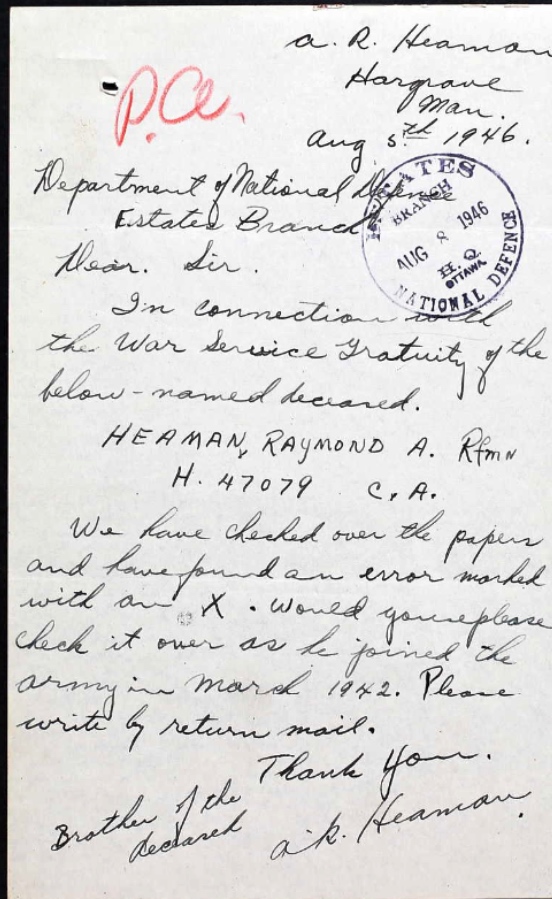 A. R. Heaman
Hargrave
Man.
P.A.
Aug 5th 1946.
Department of National Defence
Estates Branch
ESTATES
BRANCH
AUG 8 1946
H.Q.
OTTAWA
NATIONAL DEFENCE
Dear. Sir.
In connection with
the War Service Gratuity of the
below-named deceased.
HEAMAN, RAYMOND A. Rfmn
H. 47079 C.A.
We have checked over the papers
and have found an error marked
with an X. Would you please
check it over as he joined the
army in March 1942. Please
write by return mail.
Thank You.
Brother of the
deceased
A. R. Heaman.